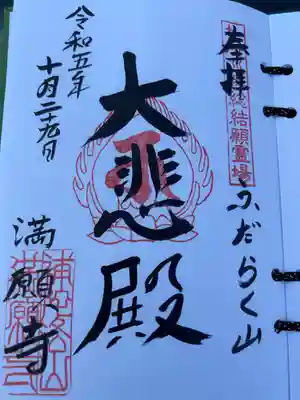 奉拝
総結願霊場
ふだらく山
大悲殿
令和五年
十月二十九日
満願寺